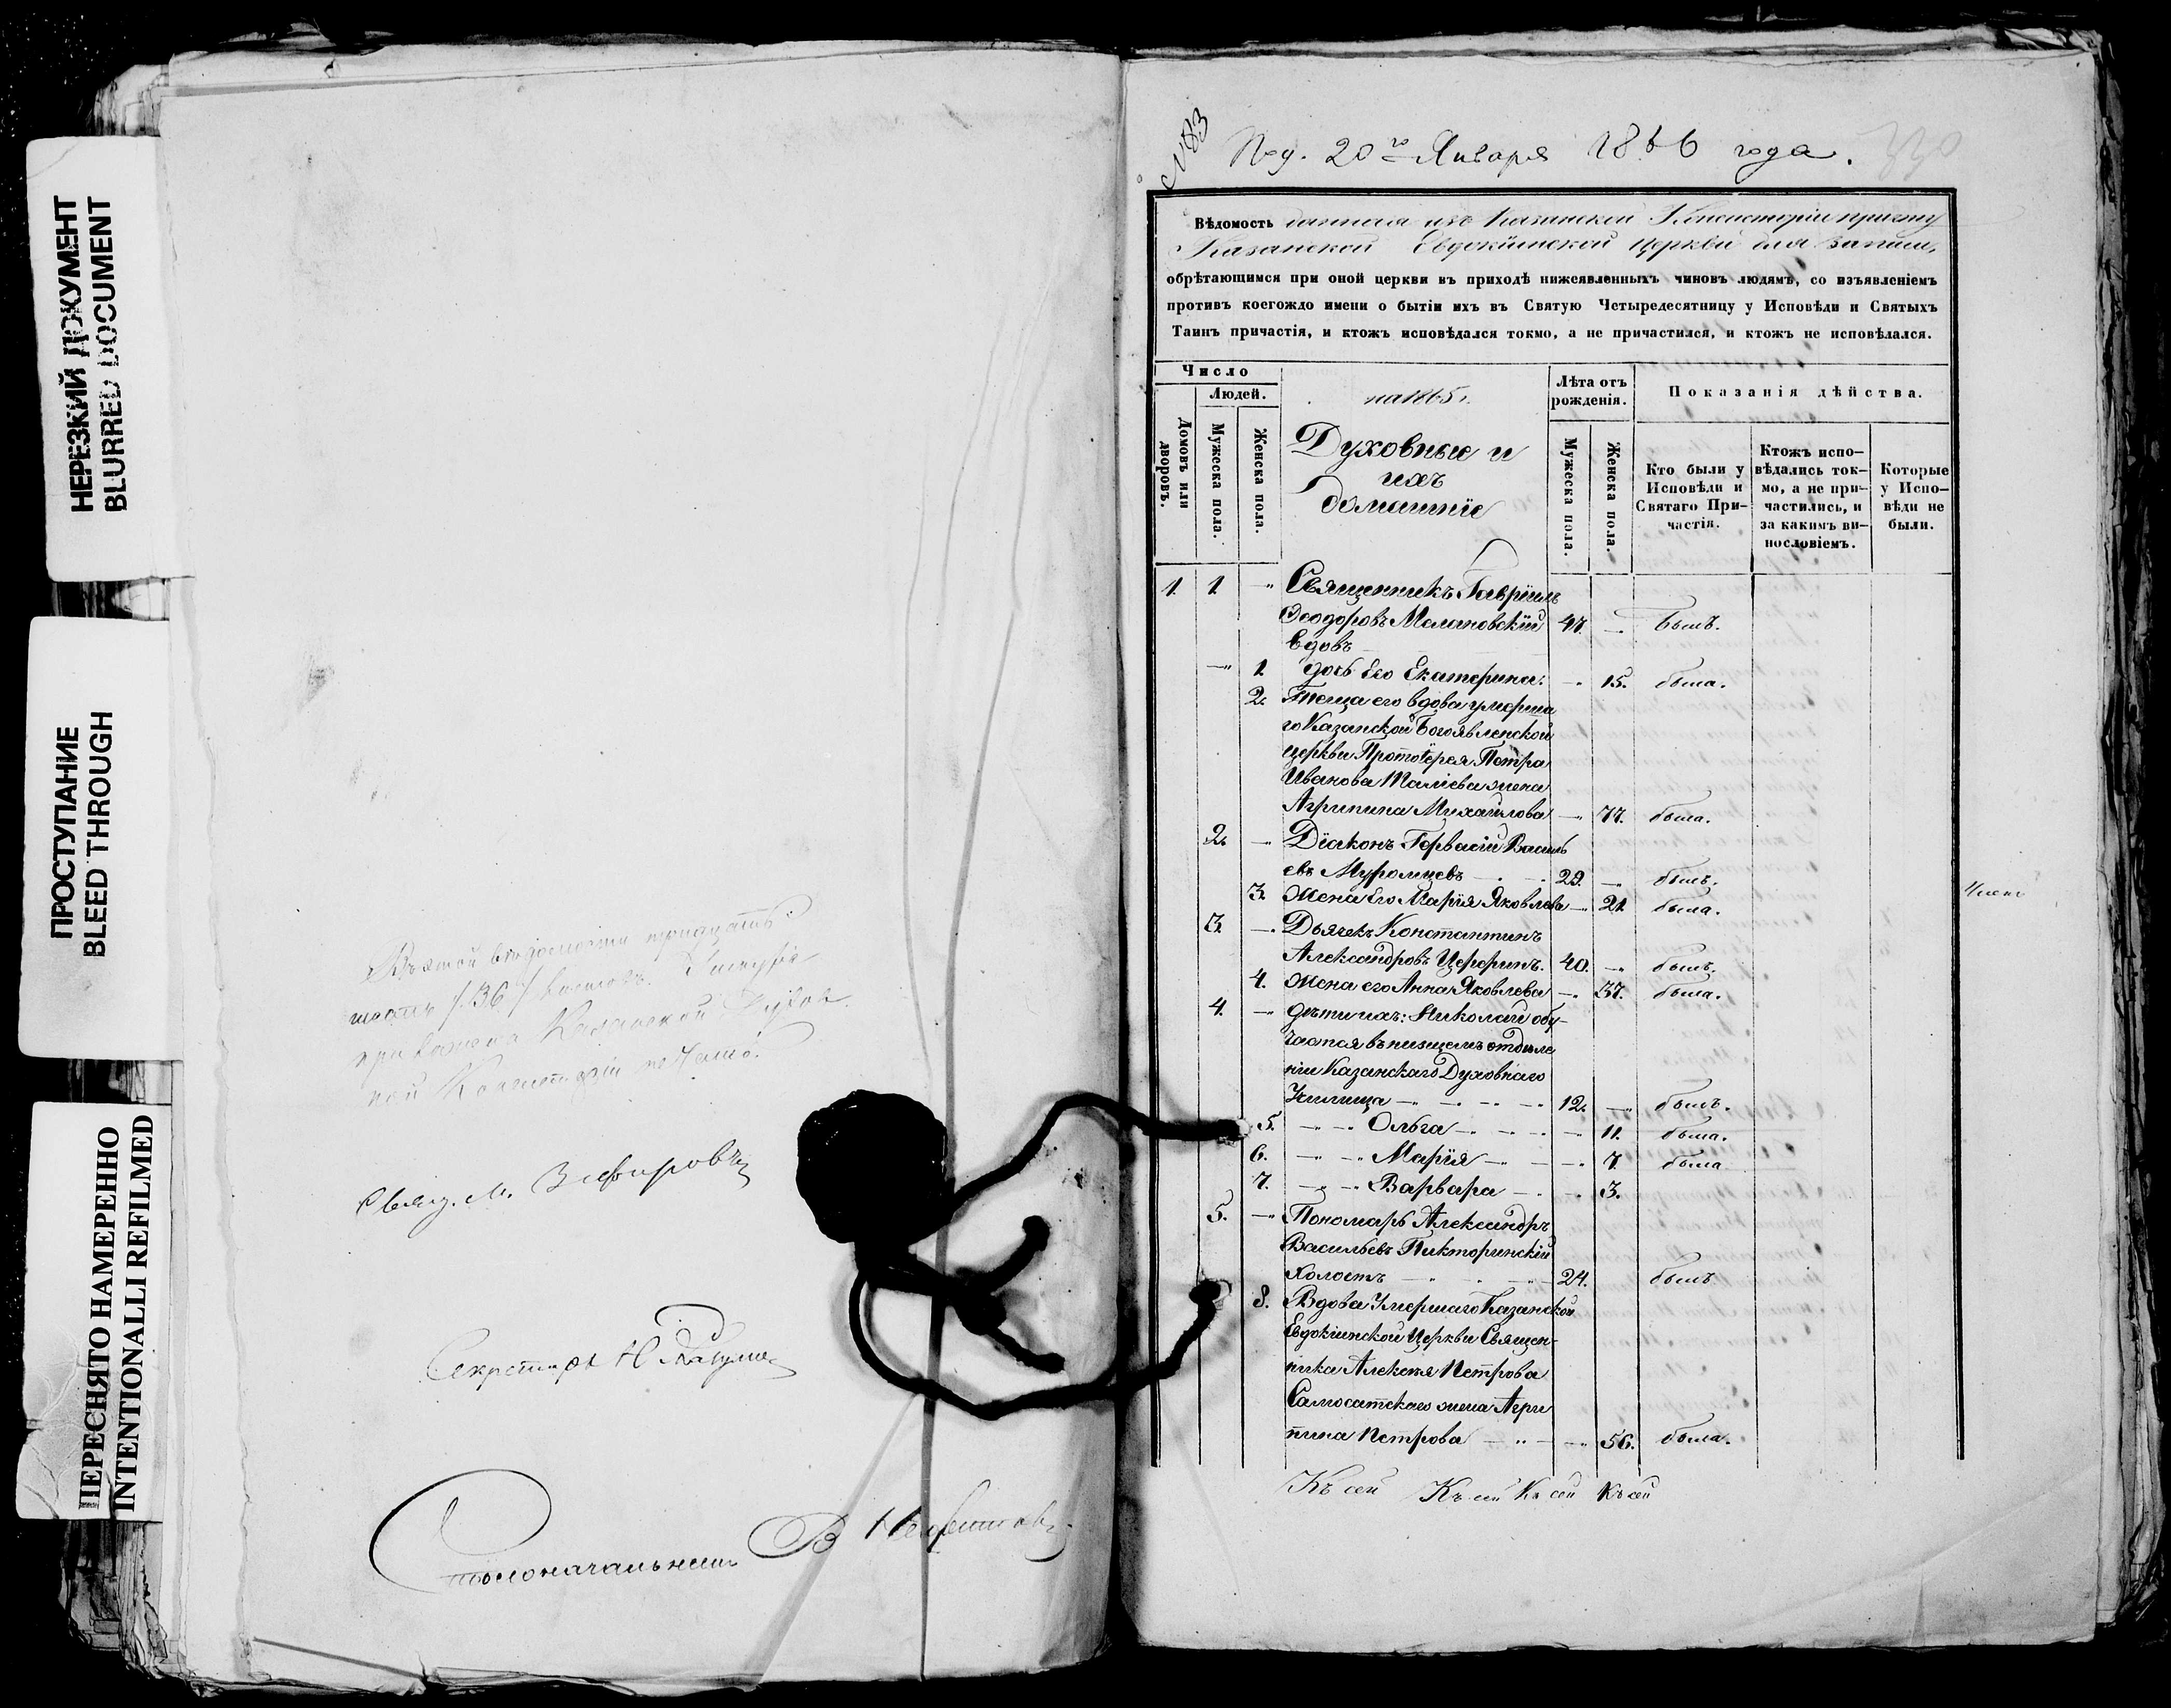 НЕРЕЗКИЙ ДОКУМЕНТ
BLURRED DOCUMENT
ПРОСТУПАНИЕ
BLEED THROUGH
ПЕРЕСНЯТО НАМЕРЕННО
INTENTIONALLI REFILMED
Въ этой вѣдомости тридцать
шесть /36/ листовъ.
при Казанской Духов
ной Консисторіи
Свящ. М. Зефировъ
Секретарь Н
Столоначальникъ В
№ 83
Под. 20го Января 1866 года.
330
Вѣдомость данная изъ Казанской Консисторіи причту
Казанской Евдокіинской церкви для записи,
обрѣтающимся при оной церкви въ приходѣ нижеявленныхъ чиновъ людямъ, со изъявленіемъ
противъ коегождо имени о бытіи ихъ въ Святую Четыредесятницу у Исповѣди и Святыхъ
Таинъ причастія, и ктожъ исповѣдался токмо, а не причастился, и ктожъ не исповѣдался.
Число
Людей.
Домовъ или дворовъ.
Мужеска пола.
Женска пола.
на 1865 г.
Духовные и
ихъ
домашніе
Лѣта отъ рожденія.
Мужеска пола.
Женска пола.
Показанія дѣйства.
Кто были у Исповѣди и Святаго При-частія.
Ктожъ испо-вѣдались ток-мо, а не при-частились, и за какимъ ви-нословіемъ.
Которые у Испо-вѣди не были.
1. 1. Священникъ Гавріилъ
Ѳеодоровъ Мелановскій 47. былъ.
вдовъ
1. дочь его Екатерина. 15. была.
2. Теща его вдова умерша
го Казанской Богоявленской
церкви Протоіерея Петра
Иванова Таліева жена
Агрипина Михайлова 77. была.
2. Діаконъ Гервасій Василь
евъ Муромцевъ 29. былъ.
3. Жена его Марія Яковлева 21. была.
3. Дьячекъ Константинъ
Александровъ Цереринъ. 40. былъ.
4. Жена его Анна Яковлева 37. была.
4. дѣти ихъ: Николай обу-
чается въ низшемъ отдѣле
ніи Казанскаго Духовнаго
Училища 12. былъ.
5. Ольга 11. была.
6. Марія 7. была
7. Варвара 3.
5. Пономарь Александръ
Васильевъ Пикторинскій
холостъ 24. былъ
8. Вдова умершаго Казанской
Евдокіинской Церкви Священ-
ника Алексѣя Петрова
Самосатскаго жена Агри
пина Петрова 56. была.
Къ сей Къ сей Къ сей Къ сей